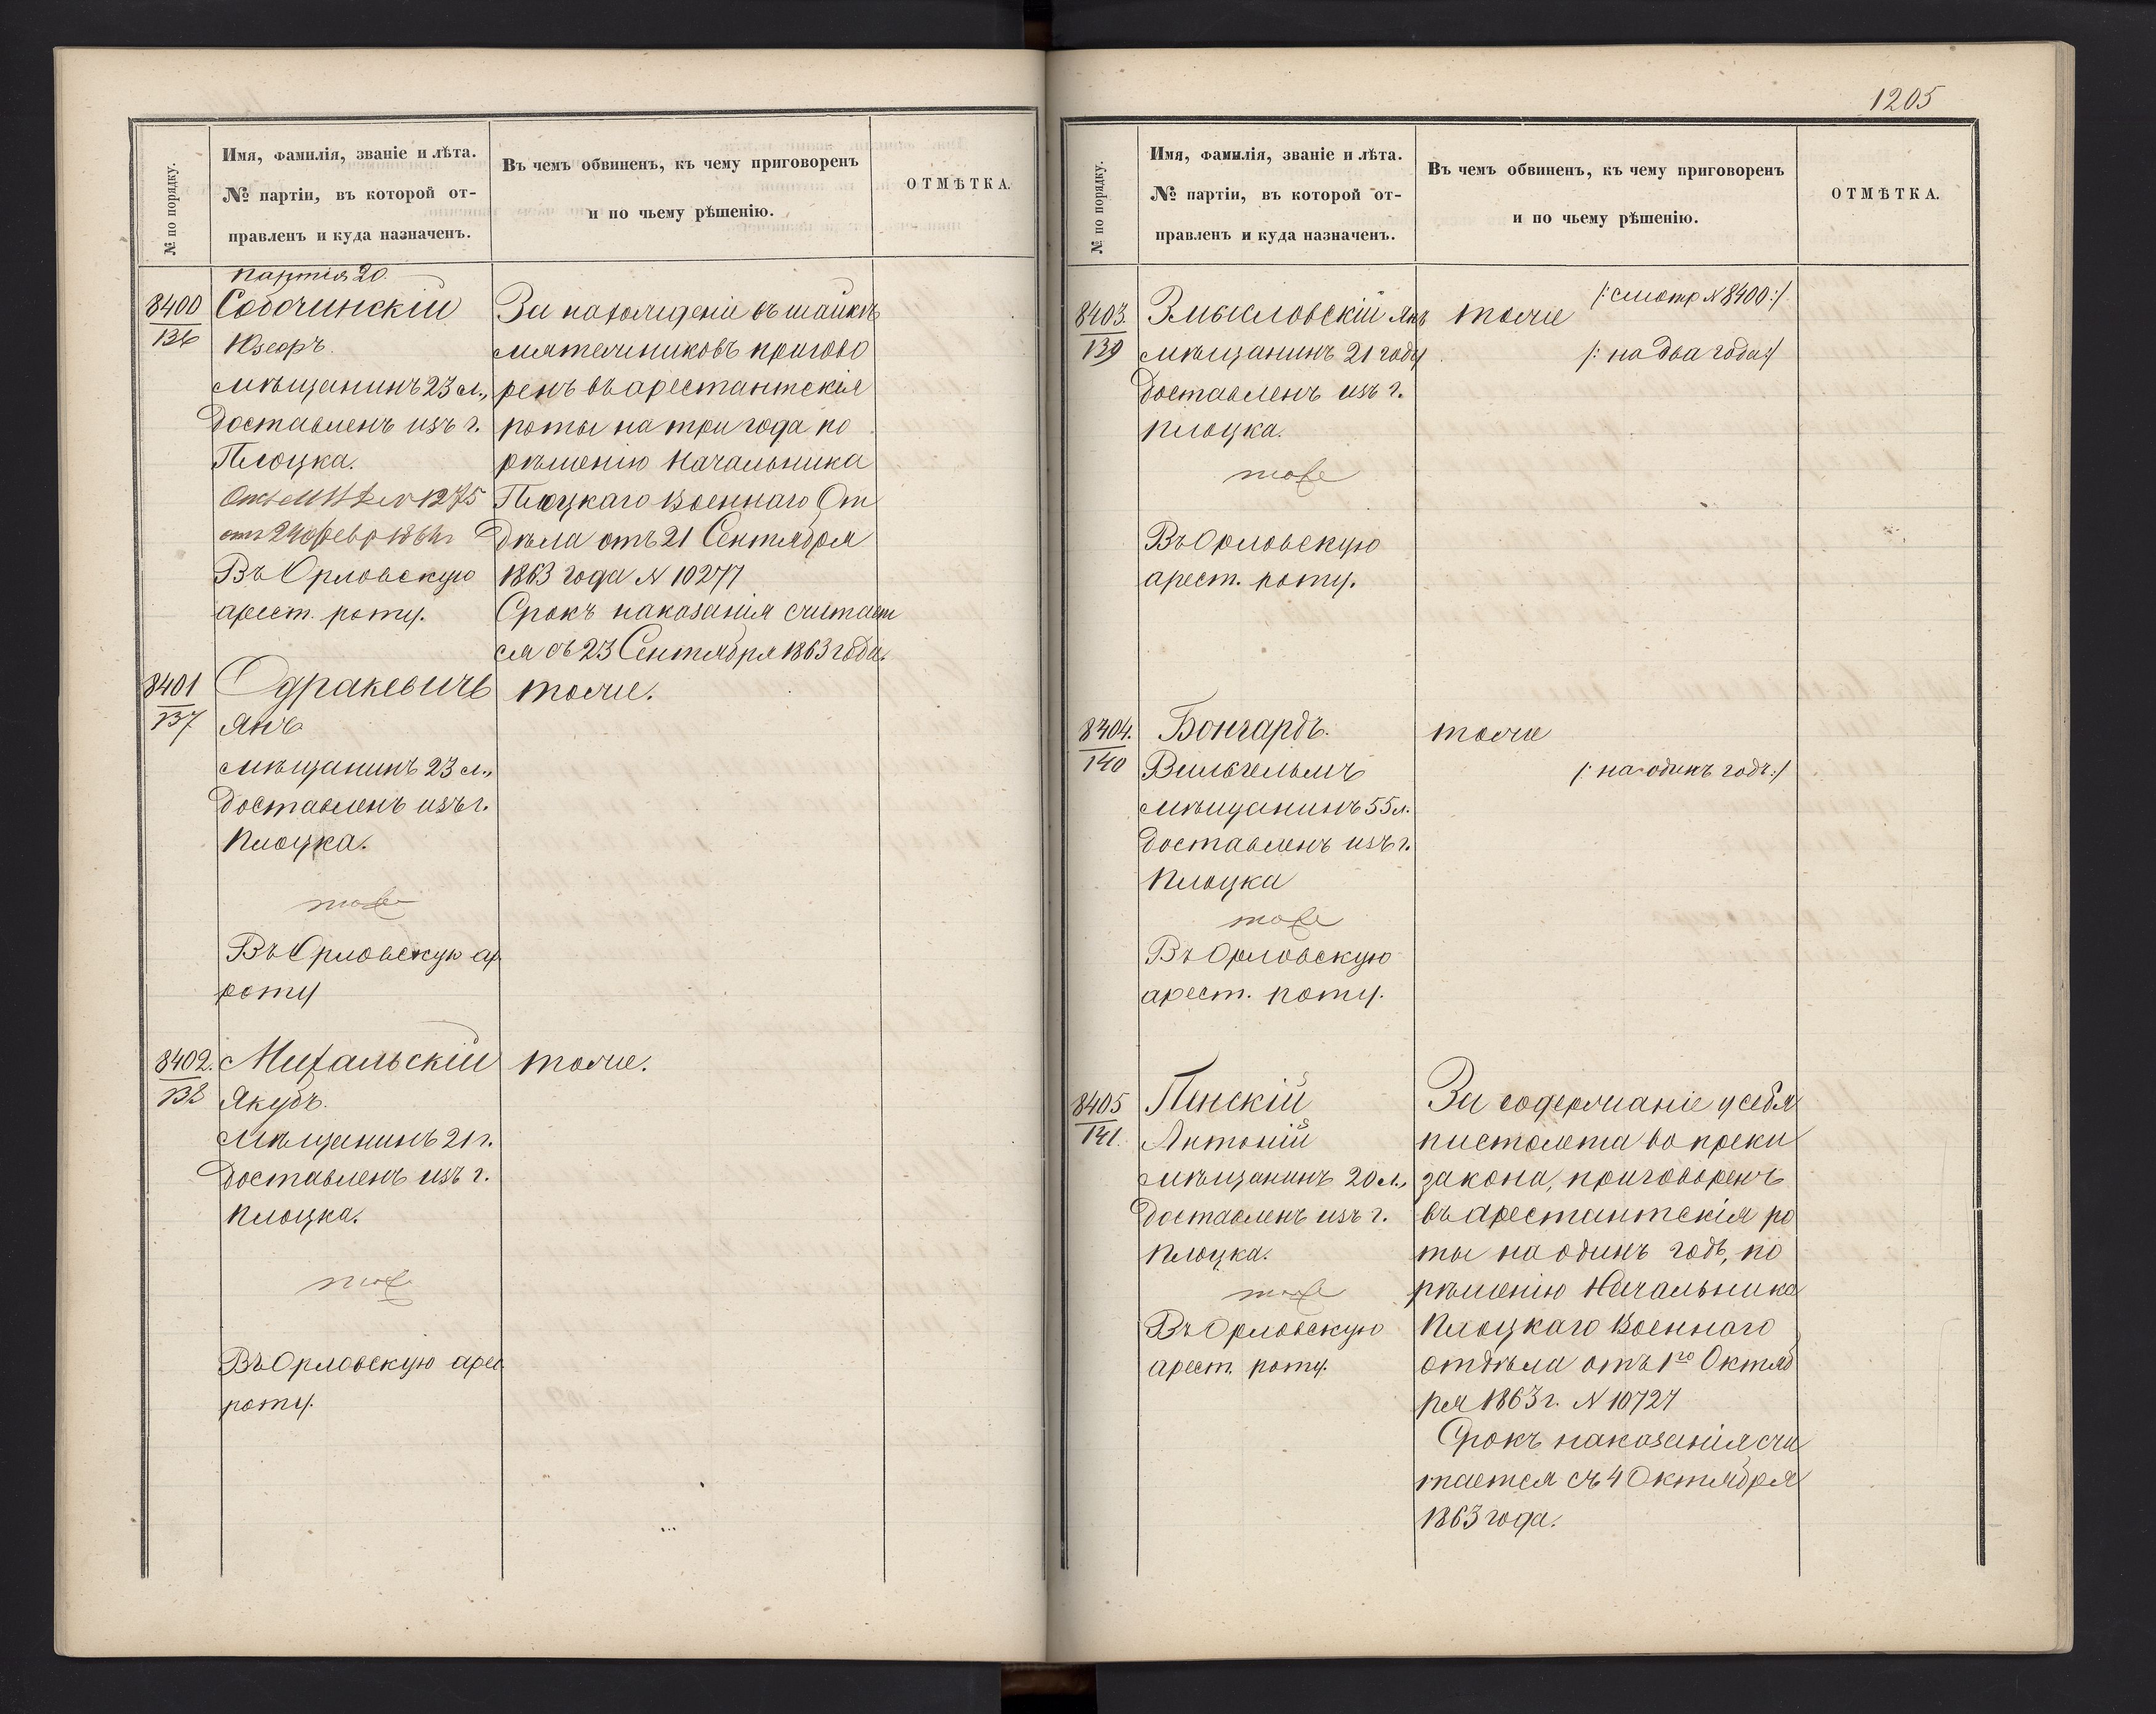 № по порядку.
Имя, фамилія, званіе и лѣта.
№ партіи, въ которой от-
правленъ и куда назначенъ.
Въ чемъ обвиненъ, къ чему приговоренъ
и по чьему рѣшенію.
ОТМѢТКА.
партія 20.
8400
136
Соботинскій
Юзефъ.
мѣщанинъ 23 л.,
доставленъ изъ г.
Плоцка.
№ 1275
отъ 24 февр 1864 г
Въ Орловскую
арест. роту.
За нахожденіе въ шайкѣ
мятежниковъ пригово
ренъ въ арестантскія
роты на три года по
рѣшенію Начальника
Плоцкаго Военнаго От
дѣла отъ 21 Сентября
1863 года N 10277
Срокъ наказанія считает
ся съ 23 Сентября 1863 года.
8401
137
Одракевичъ
Янъ
мѣщанинъ 23 л.,
доставленъ изъ г.
Плоцка.
тоже
Въ Орловскую ар
роту
тоже.
8402.
138
Михальскій
Якубъ.
мѣщанинъ 21 г.
доставленъ изъ г.
Плоцка.
тоже
Въ Орловскую арес
роту.
тоже.
1205
№ по порядку.
Имя, фамилія, званіе и лѣта.
№ партіи, въ которой от-
правленъ и куда назначенъ.
Въ чемъ обвиненъ, къ чему приговоренъ
и по чьему рѣшенію.
ОТМѢТКА.
8403.
139
Змысловскій Янъ
мѣщанинъ 21 году
доставленъ изъ г.
Плоцка.
тоже
Въ Орловскую
арест. роту.
тоже
/:смотр N 8400:/
/: на два года:/
8404.
140
Бонгардъ.
Вильгельмъ
мѣщанинъ 55 л.
доставленъ изъ г.
Плоцка
тоже
Въ Орловскую
арест. роту.
тоже
/: на одинъ годъ:/
8405
141.
Пенскій
Антоній
мѣщанинъ 20 л.,
доставленъ изъ г.
Плоцка.
тоже
Въ Орловскую
арест. роту.
За содержаніе у себя
пистолета во преки
закона, приговоренъ
въ арестантскія ро
ты на одинъ годъ, по
рѣшенію Начальника
Плоцкаго Военнаго
отдѣла отъ 1го Октяб
ря 1863 г. N 10727
Срокъ наказанія счи
тается съ 4 Октября
1863 года.